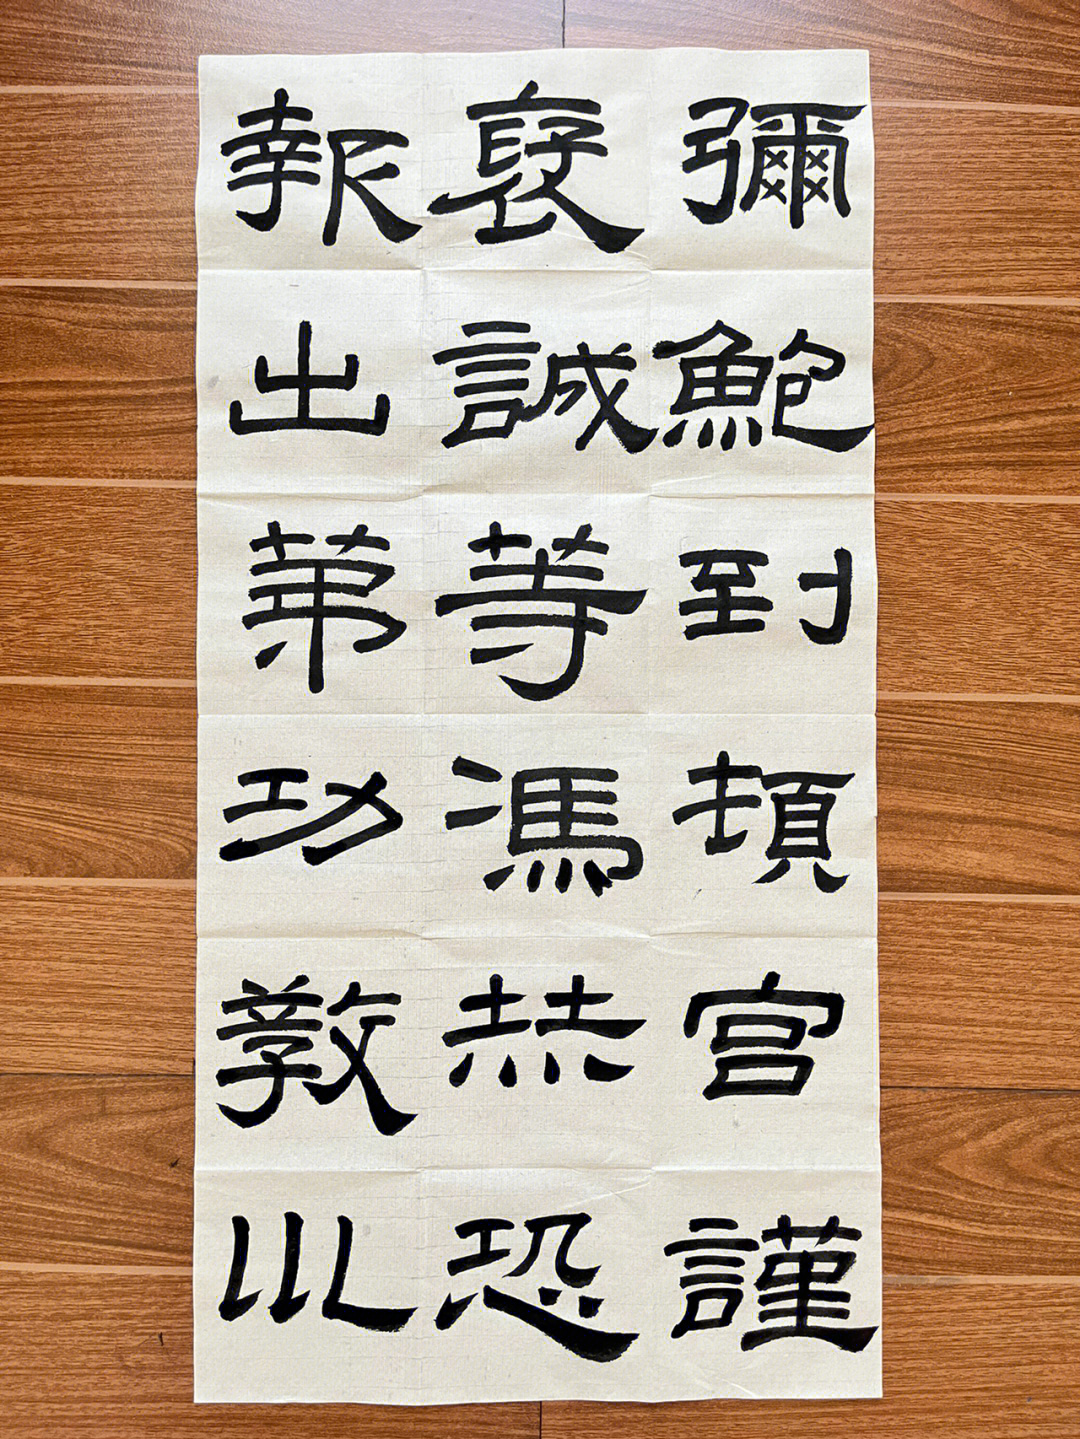 彌鮑到頓宮謹
褒誠等馮恭恐
報出第功敎川